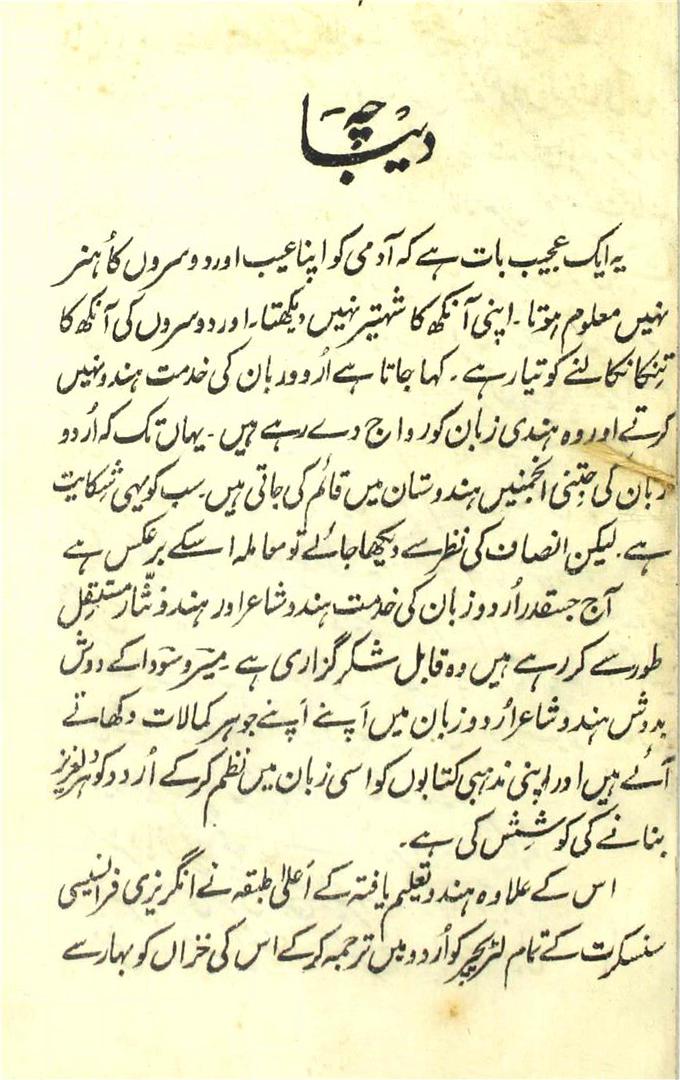 دیباچہ
یہ ایک عجیب بات ہے کہ آدمی کو اپنا عیب اور دوسروں کا ہُنر
نہیں معلوم ہوتا۔ اپنی آنکھ کا شہتیر نہیں دیکھتا۔ اور دوسروں کی آنکھ کا
تِنکا نکالنے کو تیار ہے۔ کہا جاتا ہے اُردو زبان کی خدمت ہندو نہیں
کرتے اور وہ ہندی زبان کو رواج دے رہے ہیں۔ یہاں تک کہ اُردو
زبان کی جتنی انجمنیں ہندوستان میں قائم کی جاتی ہیں۔ سب کو یہی شکایت
ہے۔ لیکن انصاف کی نظر سے دیکھا جائے تو معاملہ اسکے برعکس ہے
آج جسقدر اُردو زبان کی خدمت ہندو شاعر اور ہندو نثّار مستقِل
طور سے کر رہے ہیں وہ قابل شکر گزاری ہے۔ میر و سودا کے دوش
بدوش ہندو شاعر اُردو زبان میں اَپنے اَپنے جوہر کمالات دکھاتے
آئے ہیں اور اپنی مذہبی کتابوں کو اسی زبان میں نظم کر کے اُردو کو ہر دلعزیز
بنانے کی کوشِش کی ہے۔
اس کے علاوہ ہندو تعلیم یافتہ کے اَعلیٰ طبقہ نے انگریزی فرانسیسی
سنسکرت کے تمام لٹریچر کو اُردو میں ترجمہ کر کے اس کی خزاں کو بہار سے